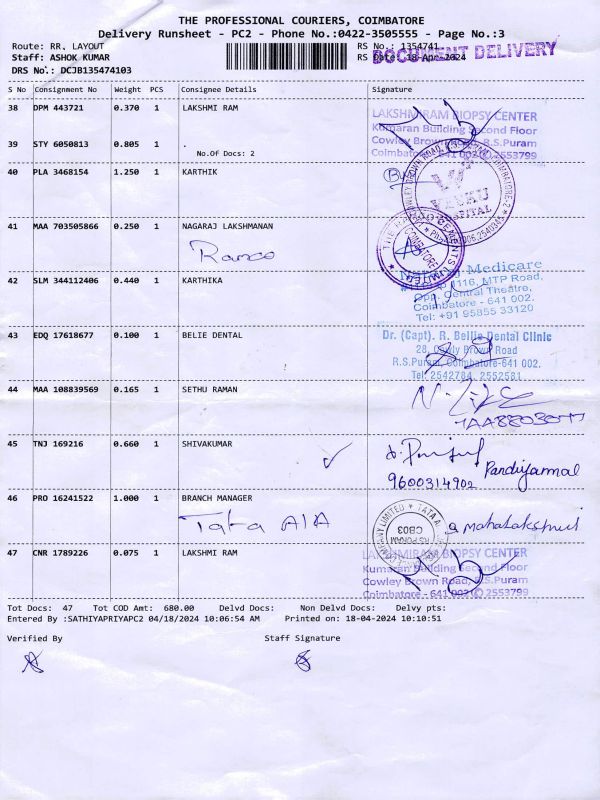 THE PROFESSIONAL COURIERS, COIMBATORE
Delivery Runsheet - PC2 - Phone No.:0422-3505555 - Page No.:3
Route: RR. LAYOUT
RS No.: 1354741
Staff: ASHOK KUMAR
RS Date: 18-Apr-2024
DOCUMENT DELIVERY
DRS No.: DCJB135474103
S No Consignment No Weight PCS Consignee Details Signature
38 DPM 443721 0.370 1 LAKSHMI RAM
LAKSHMIRAM BIOPSY CENTER
Kumaran Building Second Floor
Cowley Brown Road, R.S.Puram
Coimbatore - 641 002 2553799
39 STY 6050813 0.805 1 .
No.Of Docs: 2
40 PLA 3468154 1.250 1 KARTHIK
41 MAA 703505866 0.250 1 NAGARAJ LAKSHMANAN
Ramco
COIMBATORE
42 SLM 344112406 0.440 1 KARTHIKA
Medicare
1116, MTP Road,
Opp. Central Theatre,
Coimbatore - 641 002.
Tel: +91 95855 33120
43 EDQ 17618677 0.100 1 BELIE DENTAL
Dr. (Capt). R. Bellie Dental Clinic
28, Cowly Brown Road
R.S.Puram, Coimbatore-641 002.
Tel: 2542784, 2552581
44 MAA 108839569 0.165 1 SETHU RAMAN
45 TNJ 169216 0.660 1 SHIVAKUMAR
9600314902
Pandiyammal
46 PRO 16241522 1.000 1 BRANCH MANAGER
Tata AIA
CB03
RS PURAM
47 CNR 1789226 0.075 1 LAKSHMI RAM
LAKSHMIRAM BIOPSY CENTER
Kumaran Building Second Floor
Cowley Brown Road, R.S.Puram
Coimbatore - 641 002 2553799
Tot Docs: 47 Tot COD Amt: 680.00 Delvd Docs: Non Delvd Docs: Delvy pts:
Entered By :SATHIYAPRIYAPC2 04/18/2024 10:06:54 AM Printed on: 18-04-2024 10:10:51
Verified By Staff Signature